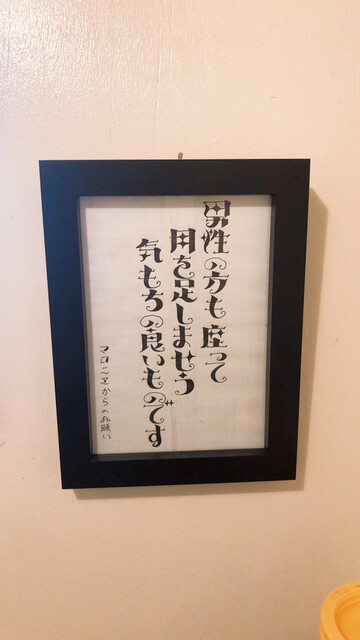 男性の方も座って
用を足しませう
気もちの良いものです
マロニエからのお願い